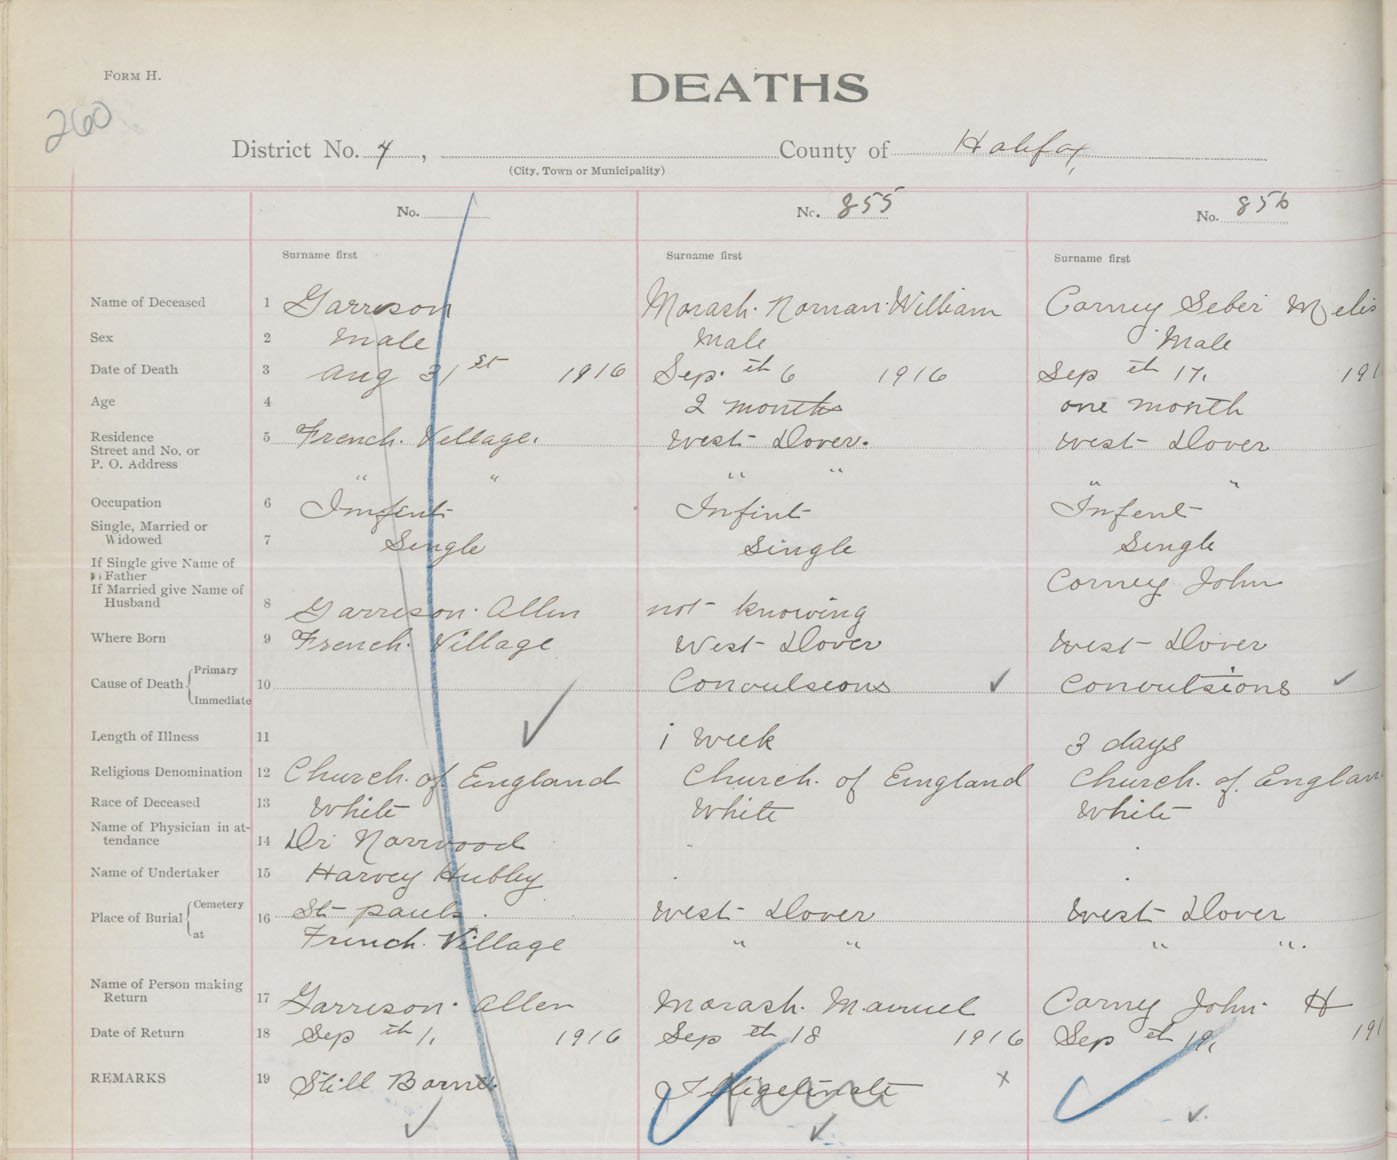 FORM H.
DEATHS
260
District No. 4, County of Halifax
(City, Town or Municipality)
No. No. 855 No. 856
Surname first Surname first Surname first
Name of Deceased 1 Garrison Morash. Norman. William Corney Seber Melis
Sex 2 male Male Male
Date of Death 3 Aug 31st 1916 Sep. th 6 1916 Sep th 17, 191
Age 4 2 months one month
Residence 5 French. Village. West Dover. West Dover
Street and No. or
P. O. Address " " " " " "
Occupation 6 Imfent Infint Infent
Single, Married or
Widowed 7 Single Single Single
If Single give Name of
Father Corney John
If Married give Name of
Husband 8 Garrison. Allen not knowing
Where Born 9 French. Village West Dover West Dover
Cause of Death Primary
Immediate 10 Convulsions ✓ Convultsions ✓
Length of Illness 11 ✓ 1 Week 3 days
Religious Denomination 12 Church. of England Church. of England Church. of Englan
Race of Deceased 13 White White White
Name of Physician in at-
tendance 14 Dr Norwood "
Name of Undertaker 15 Harvey Hubley
Place of Burial Cemetery 16 St pauls. West Dover West Dover
at French. Village " " " ".
Name of Person making
Return 17 Garrison. Allen Morash. Manuel Corney John. H
Date of Return 18 Sep th 1, 1916 Sep th 18 1916 Sep th 19, 191
REMARKS 19 Still Borne Illegetimate x
✓ ✓ ✓